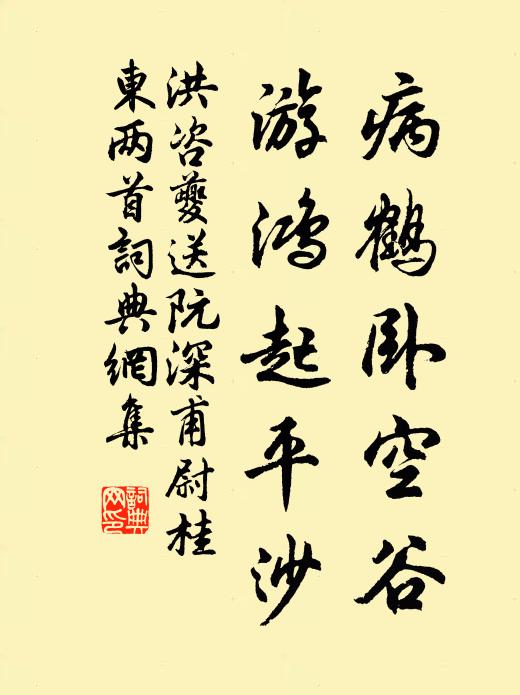 病鹤卧空谷
游鸿起平沙
洪咨夔送阮深甫尉桂
東两首詞典網集
詞典
网印